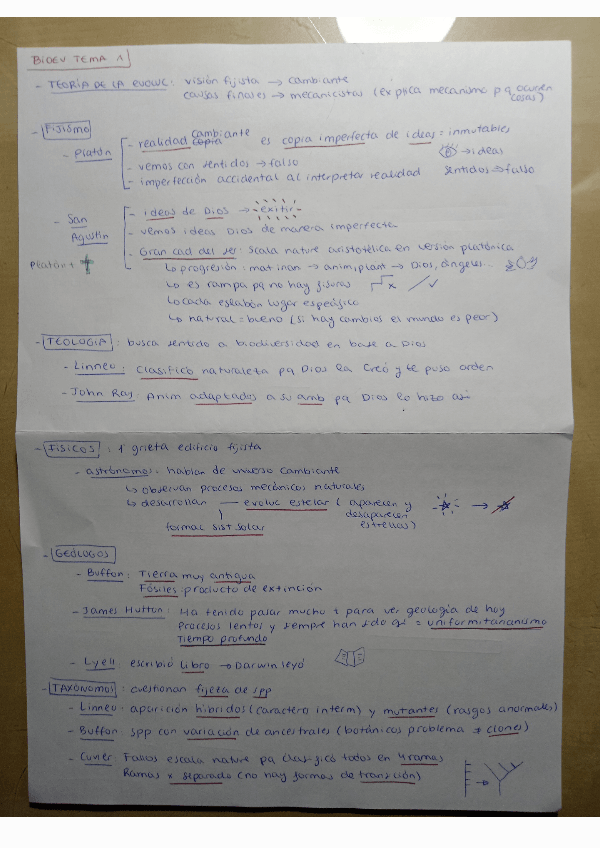 BIOEV TEMA 1
- TEORÍA DE LA EVOLUC: visión fijista → cambiante
causas finales → mecanicistas (explica mecanismo pq ocurren cosas)
- FIJISMO
- Platón
- realidad copia cambiante es copia imperfecta de ideas = inmutables
- vemos con sentidos → falso
→ ideas
- imperfección accidental al interpretar realidad
sentidos → falso
- San Agustín
Platón +
- ideas de Dios → existir
- vemos ideas Dios de manera imperfecta
- Gran cad del ser: Scala nature aristotélica en versión platónica
↳ progresión: mat inan → anim, plant → Dios, ángeles...
↳ es rampa pq no hay fisuras
↳ cada eslabón lugar específico
↳ natural = bueno (si hay cambios el mundo es peor)
- TEOLOGIA: busca sentido a biodiversidad en base a Dios
- Linneo: Clasificó naturaleza pq Dios la creó y le puso orden
- John Ray: Anim adaptados a su amb pq Dios lo hizo así
- FISICOS: 1ª grieta edificio fijista
- astrónomos: hablan de universo cambiante
↳ observan procesos mecánicos naturales
↳ desarrollan — evoluc estelar (aparecen y desaparecen estrellas)
formac sist solar
- GEÓLOGOS
- Buffon: Tierra muy antigua
Fósiles: producto de extinción
- James Hutton: Ha tenido pasar mucho t para ver geología de hoy
Procesos lentos y siempre han sido así = uniformitarianismo
Tiempo profundo
- Lyell: escribió libro → Darwin leyó
- TAXÓNOMOS: cuestionan fijeza de spp
- Linneo: aparición híbridos (caracteres interm) y mutantes (rasgos anormales)
- Buffon: spp con variación de ancestrales (botánicos problema + clones)
- Cuvier: Fallos escala nature pq clasificó todos en 4 ramas
Ramas x separado (no hay formas de transición)